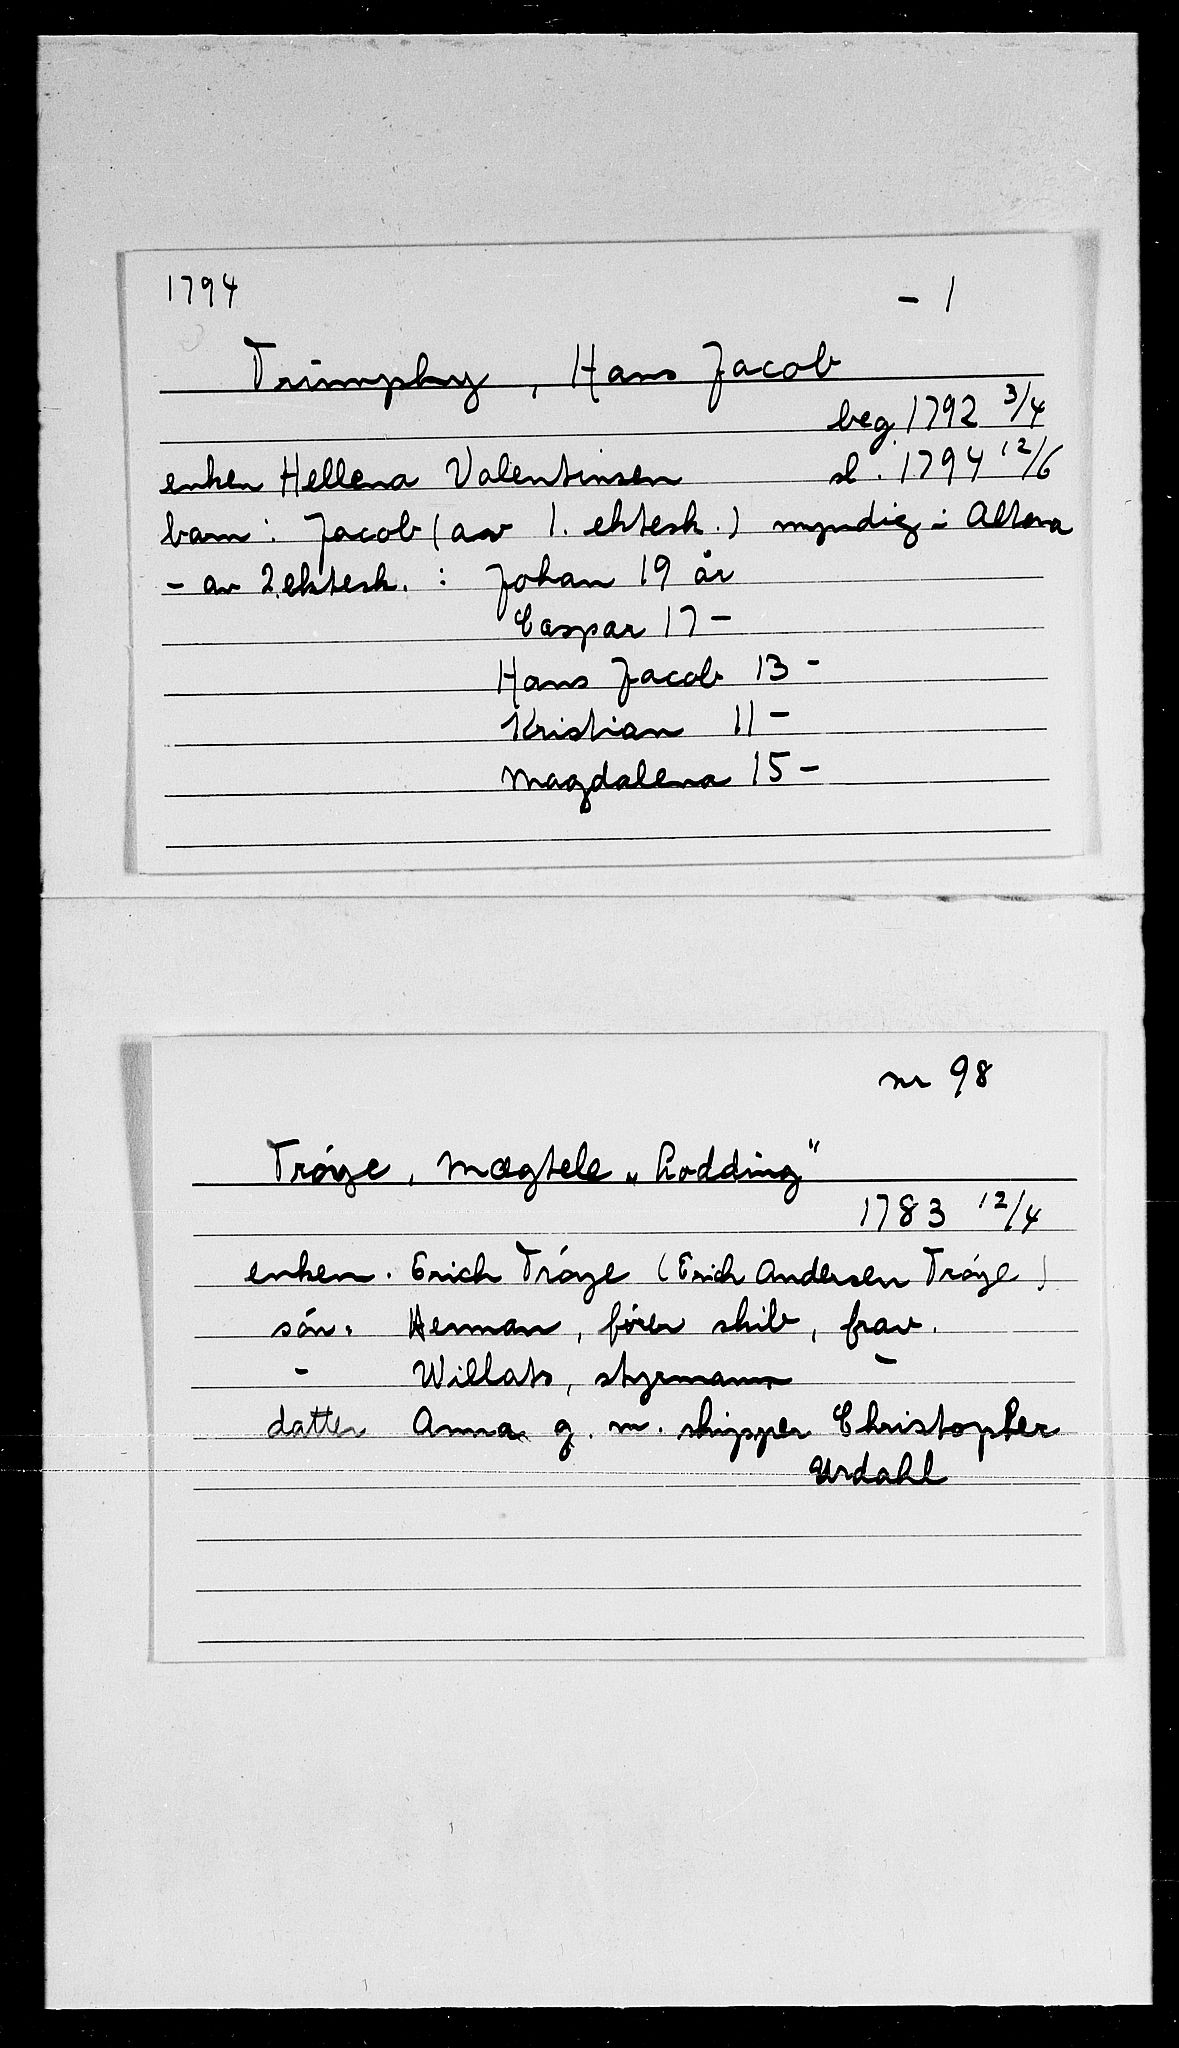 1794 - 1
Trümphy, Hans Jacob
beg. 1792 3/4
enken Hellena Valentinsen sl. 1794 12/6
barn: Jacob (av 1. ektesk.) myndig i Altona
- av 2. ektesk. : Johan 19 år
Caspar 17 -
Hans Jacob 13 -
Kristian 11 -
Magdalena 15 -
nr 98
Tröye, Mægtele „Lodding"
1783 12/4
enken. Erich Tröye (Erich Andersen Tröye)
sön. Herman, förer skib, frav.
- Willats, styrmann -
datter Anna g. m. skipper Christopher
Urdahl